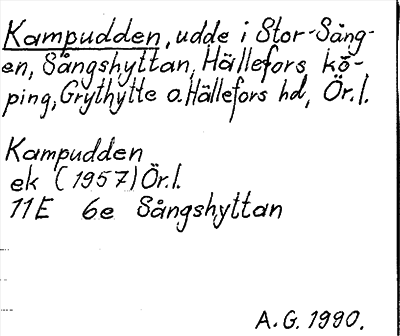 Kampudden, udde i Stor-Sång-
en, Sångshyttan, Hällefors kö-
ping, Grythytte o. Hällefors hd, Ör.l.
Kampudden
ek (1957) Ör.l.
11E 6e Sångshyttan
A.G. 1990.